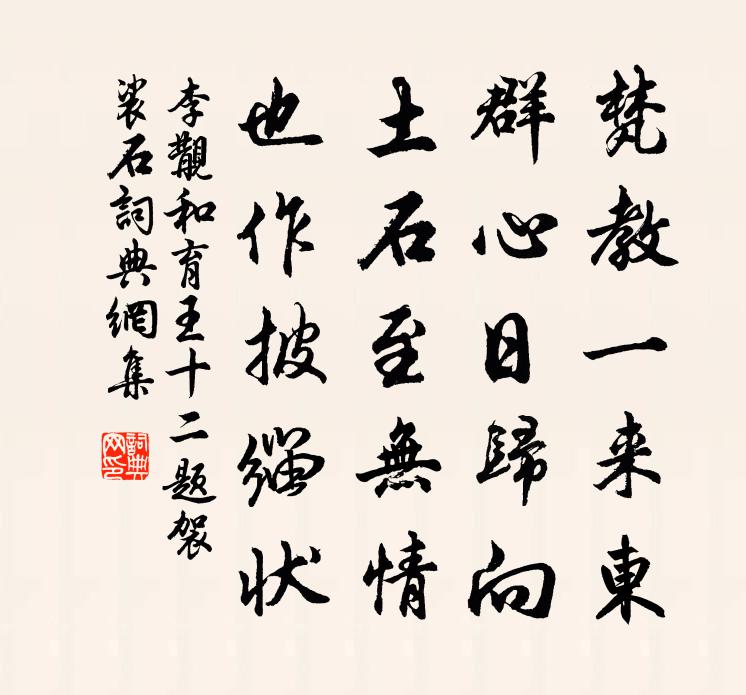 梵教一来東
群心日歸向
土石至無情
也作披緇状
李觏和育王十二題袈
裟石詞典網集
詞典网印